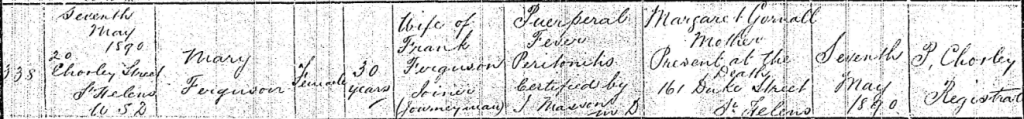 338
Seventh
May
1890
20
Chorley Street
St Helens
U S D
Mary
Ferguson
Female
30
years
Wife of
Frank
Ferguson
Joiner
(Journeyman)
Puerperal
Fever
Peritonitis
Certified by
J Masson
M D
Margaret Gornall
Mother
Present at the
Death
161 Duke Street
St Helens
Seventh
May
1890
P, Chorley
Registrar